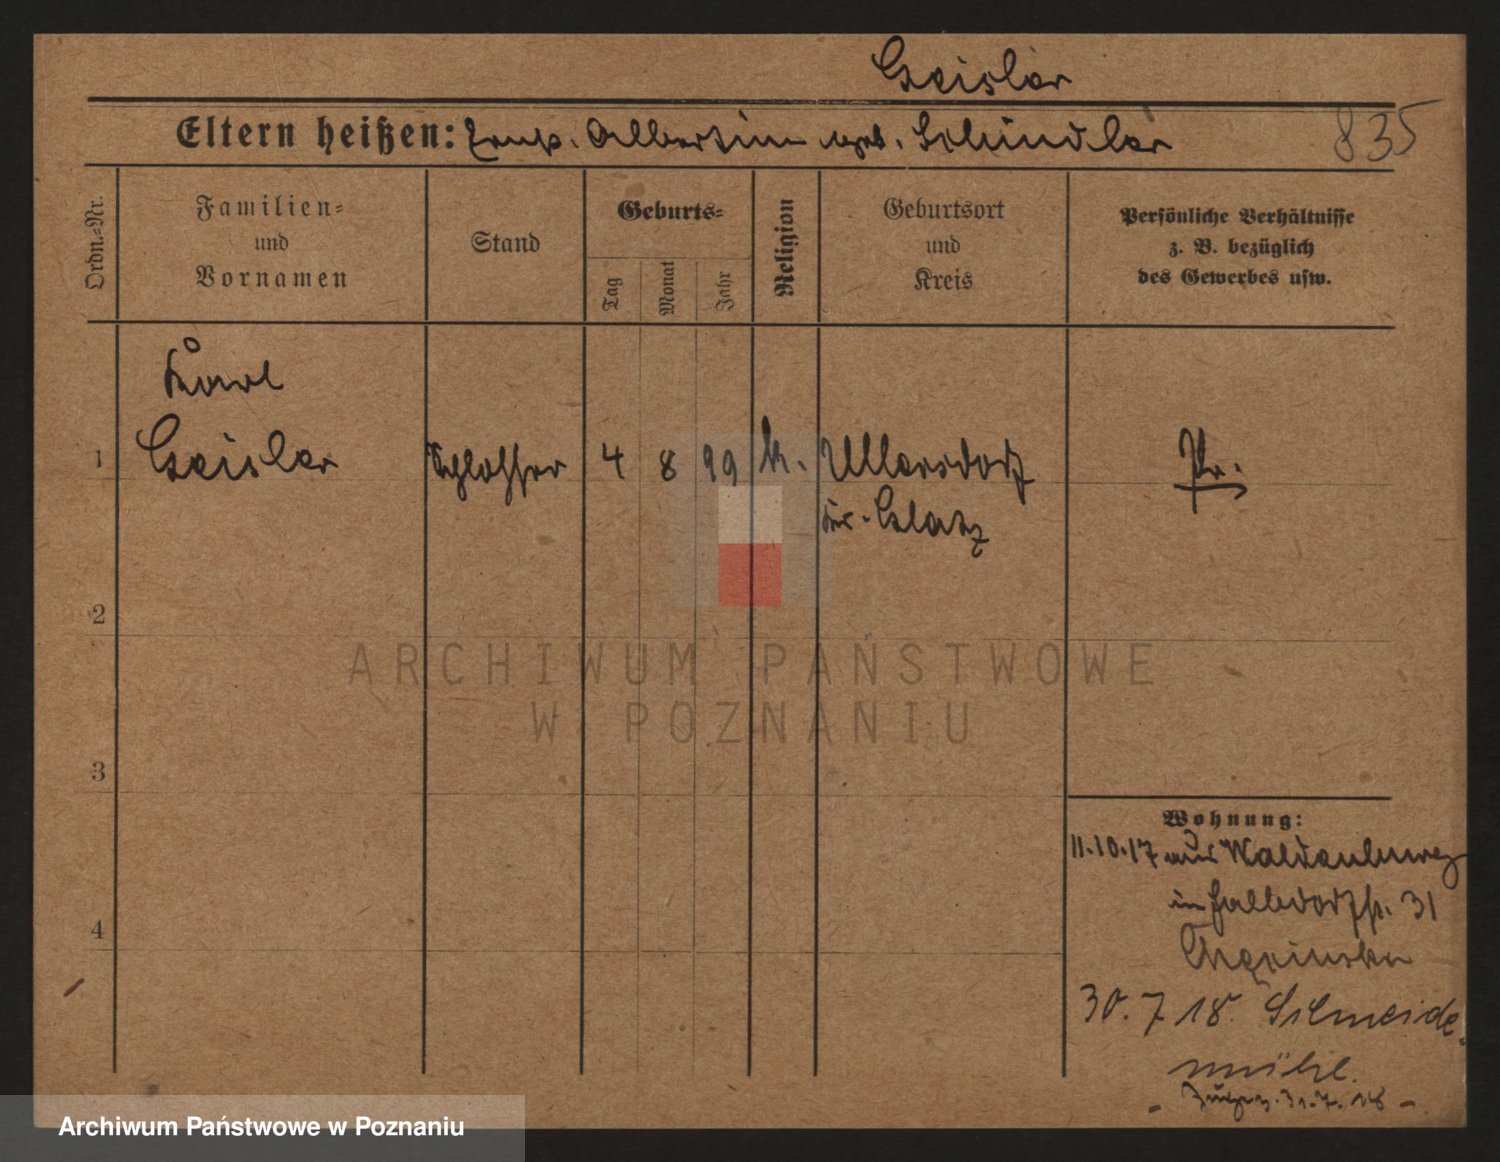 Geisler
Eltern heißen: Albertine geb. Schindler 835
Ordn.-Nr.
Familien- und Vornamen
Stand
Geburts-
Tag
Monat
Jahr
Religion
Geburtsort und Kreis
Persönliche Verhältnisse
z. B. bezüglich
des Gewerbes usw.
Karl
1 Geisler Schlosser 4 8 99 k. Ullersdorf Pr.
Kr. Glatz
2
3
4
Wohnung:
11.10.17 aus Waldenburg
in 31
30.7.18. Schneide-
mühl.
31.7.18
ARCHIWUM PAŃSTWOWE
W POZNANIU
Archiwum Państwowe w Poznaniu